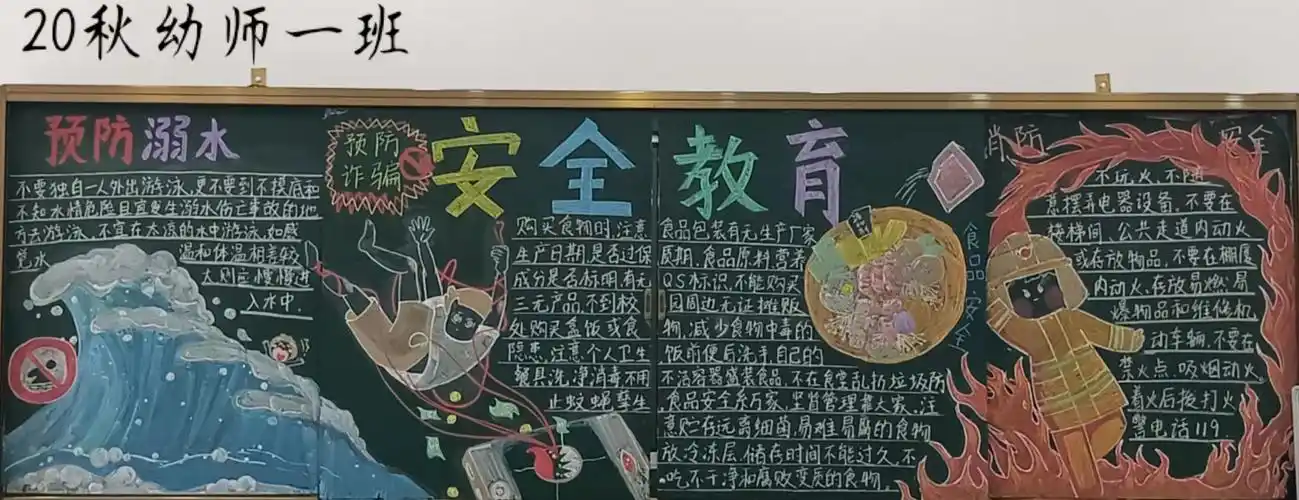 20秋幼师一班
预防溺水
不要独自一人外出游泳,更不要到不摸底和
不知水情危险且宜发生溺水伤亡事故的地
方去游泳,不宜在太凉的水中游泳,如感
觉水
温和体温相差较
大则应慢慢进
入水中.
预防
诈骗
安全教育
购买食物时,注意
生产日期,是否过保
成分是否标明,有无
三元产品,不到校
处购买盒饭或食
隐患,注意个人卫生
餐具洗净消毒不用
止蚊蝇孳生
食品包装有无生产厂家
质期,食品原料营养
QS标识,不能购买
园周边无证摊贩
物,减少食物中毒的
饭前便后洗手,自己的
不洁容器盛装食品,不在食堂乱扔垃圾防
食品安全系万家,监督管理靠大家.注
意贮存远离细菌,易难易腐的食物
放冷冻层,储存时间不能过久,不
吃,不干净和腐败变质的食物.
食品安全
消防安全
不玩火、不随
意摆弄电器设备.不要在
楼梯间、公共走道内动火
或存放物品,不要在棚厦
内动火、存放易燃易
爆物品和维修机
动车辆,不要在
禁火点、吸烟动火.
着火后拨打火
警电话119.